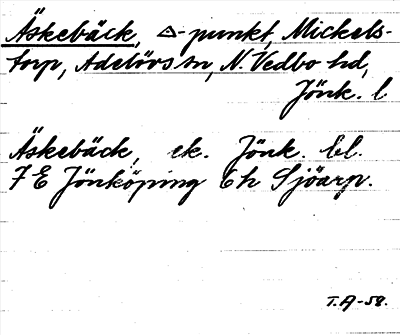 Äskebäck, △-punkt, Mickels-
torp, Adelövs sn, N. Vedbo hd,
Jönk. l
Äskebäck, ek. Jönk. bl.
7 E Jönköping 6h Sjöarp.
T.A-58.